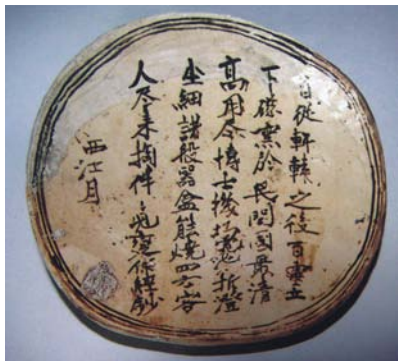 自從軒轅之後百靈立
下磁窯於民間國最清
高用尽博士機巧寬折澄
坐細諸般器盒能燒四方客
人尽来掏件〻兒現作鈔
西江月